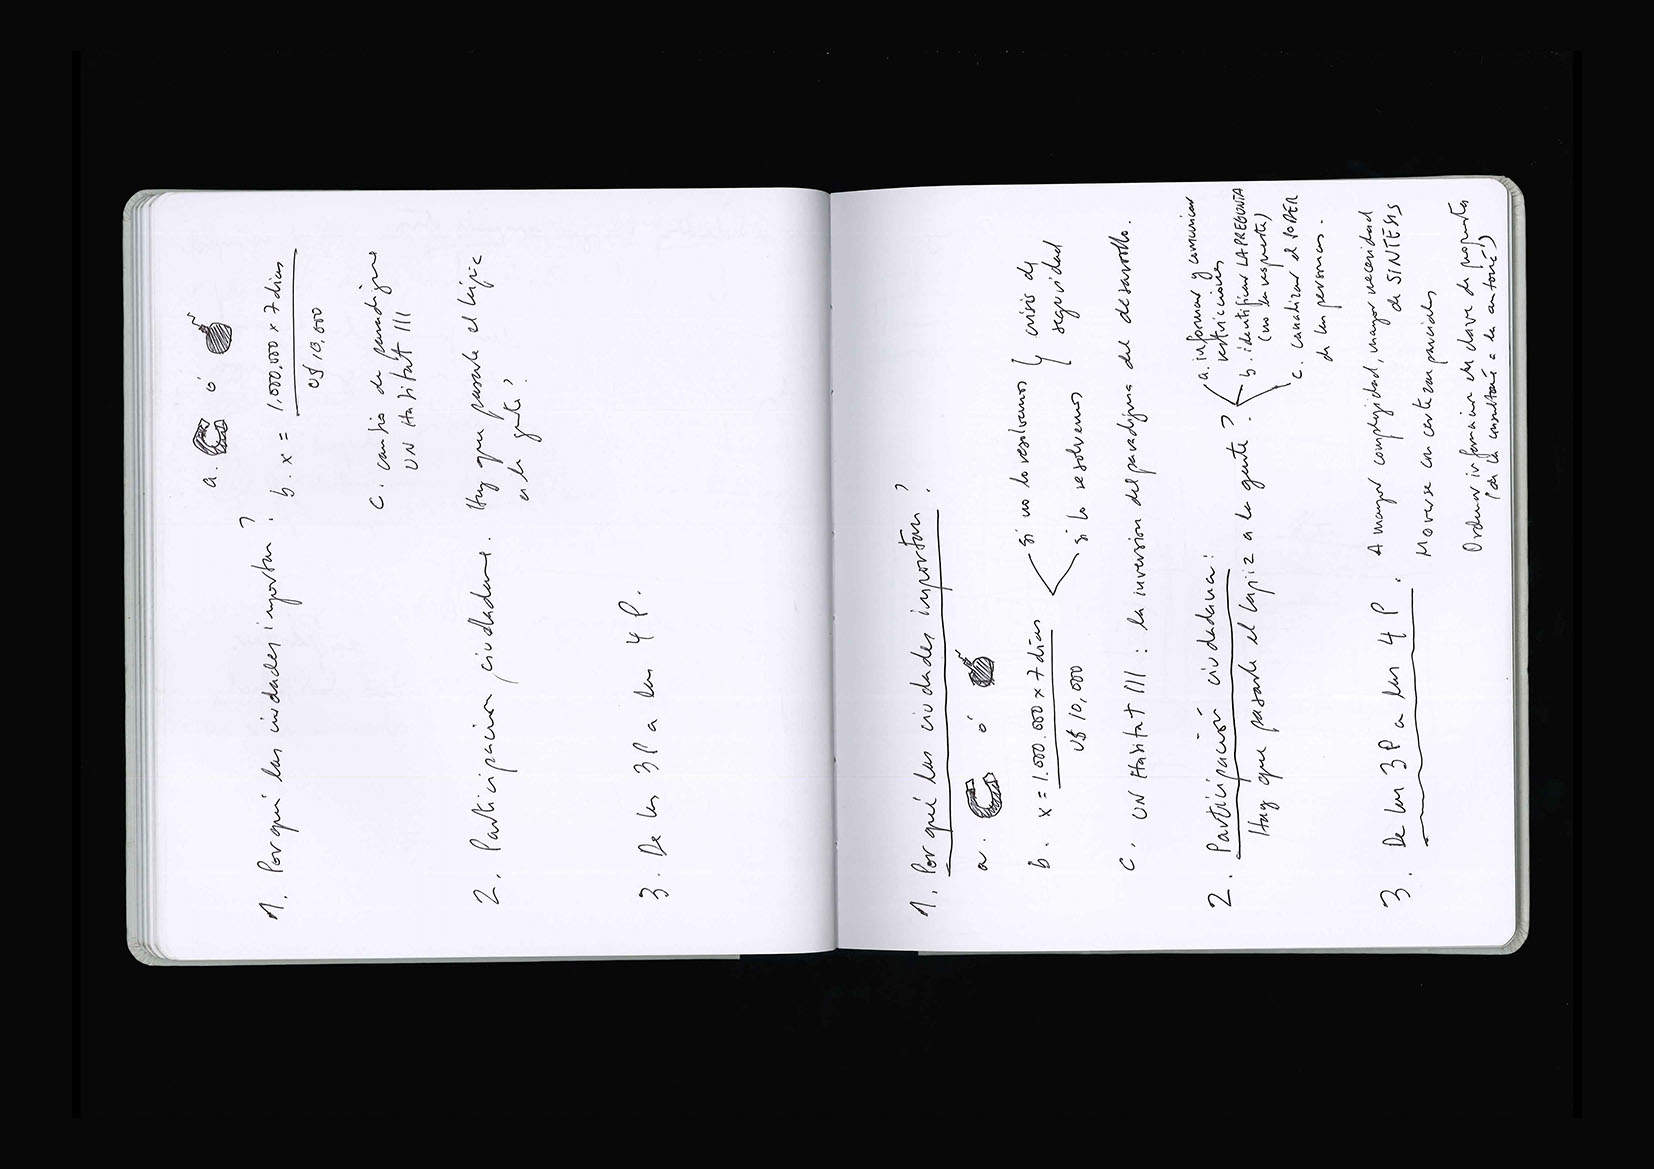 1. Por qué las ciudades importan?
a. ó
b. x = 1,000.000 x 7 dias
US 10,000
c. cambio de paradigma
UN Habitat III
2. Participación ciudadana. Hay que pasarle el lápiz
a la gente?
3. De las 3P a las 4P.
1. Por qué las ciudades importan?
a. ó
b. x = 1.000.000 x 7 dias
US 10,000
si no lo resolvemos
si lo resolvemos
} crisis de
seguridad
c. UN Habitat III : la inversion del paradigma del desarrollo.
2. Participación ciudadana:
Hay que pasarle el lapiz a la gente?
a. informar y comunicar
restricciones
b. identificar LA PREGUNTA
(no la respuesta)
c. canalizar el PODER
de las personas.
3. De las 3P a las 4P.
A mayor complejidad, mayor necesidad
de SINTESIS
Moverse con certezas parciales
Ordenar informacion en clave de propuesta